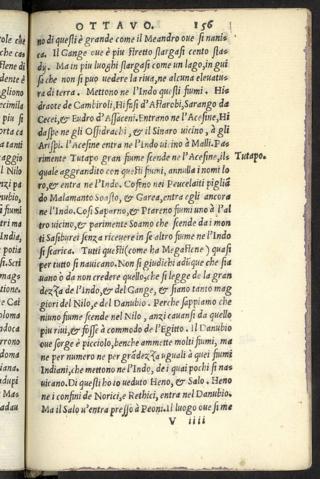 OTTAVO. 156
no di questi è grande come il Meandro oue si nauica
ca. Il Gange oue è piu stretto slargasi cento stadij.
dy. Ma in piu luoghi slargasi come un lago, in gui
sa che non si puo uedere la riua, ne alcuna eleuatura
re di terra. Mettono ne l'Indo questi fiumi. Hi
draote de Cambiroli, Hifasi d'Astarobi, Sarango da
Cecei, & Eudro d'Assaceni. Entrano ne l'Acesine, Hi
daspe ne gli Ossidrachi, & il Sinaro uicino, à gli
Arispi. l'Acesine entra ne l'Indo uicino à Malli. Pa
rimente Tutapo gran fiume scende ne l'Acesine, il Tutapo.
quale aggrandito con questi fiumi, annulla i nomi lo
ro, & entra ne l'Indo. Cofino nei Peucelaiti pigliã
do Malamanto Soasto, & Garea, entra egli ancora
ne l'Indo. Cosi Saparno, & Ptareno fiumi uno à l'al
tro uicino, & parimente Soamo che scende da i mon
ti Sasiburei senza riceuere in se altro fiume ne l'Indo
si scarica. Tutti questi (come ha Megastene) quasi
per tutto si nauicano. Non si giudichi adũque che sia
uano ò da non credere quello, che si legge de la gran
dezza de l'Indo, & del Gange, & siano tanto mag
giori del Nilo, e del Danubio. Perche sappiamo che
niuno fiume scende nel Nilo, anzi cauansi da quello
piu riui, & fosse à commodo de l'Egitto. Il Danubio
oue sorge è picciolo, benche ammette molti fiumi, ma
ne per numero ne per grãdezza uguali à quei fiumi
Indiani, che mettono ne l'Indo, de i quai pochi si na
uicano. Di questi ho io ueduto Heno, & Salo. Heno
ne i confini de Norici, e Rethici, entra nel Danubio.
Ma il Salo u'entra presso à Peoni. Il luogo oue si me
V iiii